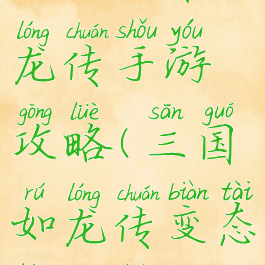 lóng chuán shǒu yóu
龙传手游
gōng lüè sān guó
攻略(三国
rú lóng chuán biàn tài
如龙传变态